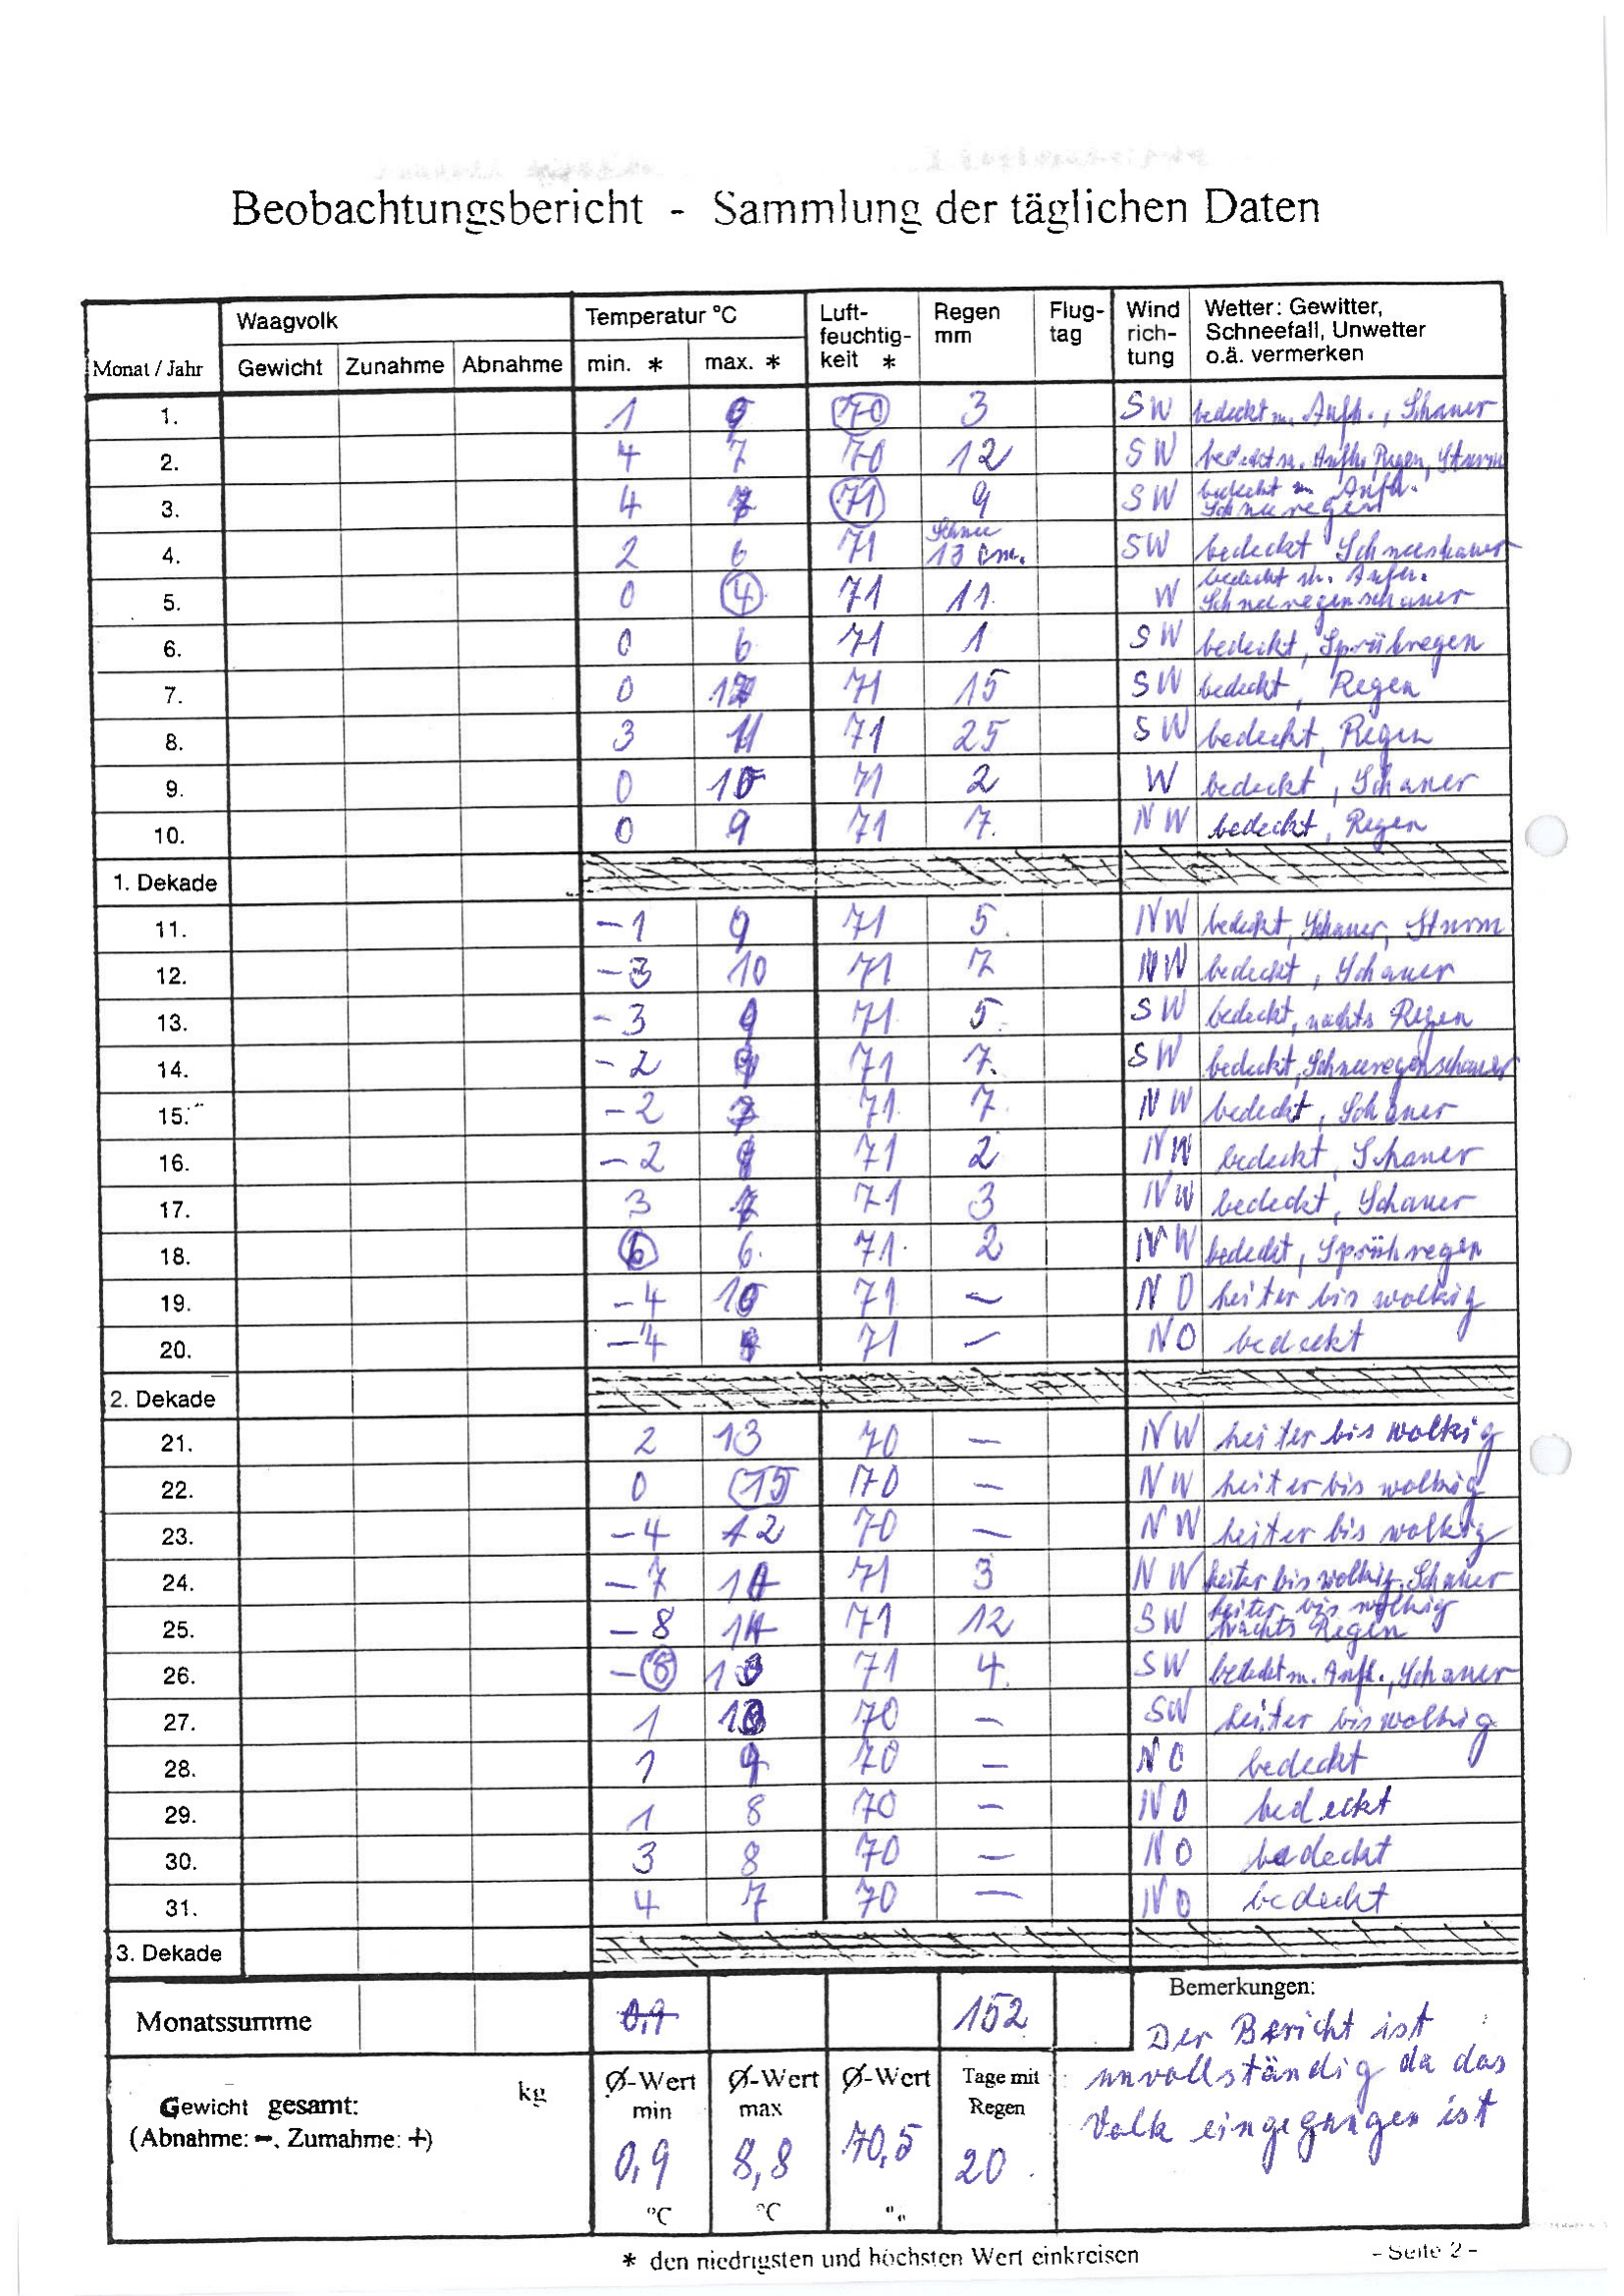 Beobachtungsbericht - Sammlung der täglichen Daten
Monat / Jahr Waagvolk Temperatur °C Luft-feuchtig-keit * Regen mm Flug-tag Wind rich-tung Wetter: Gewitter, Schneefall, Unwetter o.ä. vermerken
Gewicht Zunahme Abnahme min. * max. *
1. 1 9 70 3 SW bedeckt m. Aufh., Schauer
2. 4 7 70 12 SW bedeckt m. Aufh. Regen, Sturm
3. 4 7 71 9 SW bedeckt m Aufh. Schneeregen
4. 2 6 71 Schnee 13 cm. SW bedeckt Schneeschauer
5. 0 4 71 11 W bedeckt m. Aufh. Schneeregenschauer
6. 0 6 71 1 SW bedeckt, Sprühregen
7. 0 71 15 SW bedeckt, Regen
8. 3 11 71 25 SW bedeckt, Regen
9. 0 10 71 2 W bedeckt, Schauer
10. 0 9 71 7 NW bedeckt, Regen
1. Dekade
11. -1 9 71 5 NW bedeckt, Schauer, Sturm
12. -3 10 71 7 NW bedeckt, Schauer
13. -3 9 71 5 SW bedeckt, nachts Regen
14. -2 71 7 SW bedeckt, Schneeregenschauer
15. -2 71 7 NW bedeckt, Schauer
16. -2 71 2 NW bedeckt, Schauer
17. 3 7 71 3 NW bedeckt, Schauer
18. 6 6 71 2 NW bedeckt, Sprühregen
19. -4 10 71 – NO heiter bis wolkig
20. -4 71 – NO bedeckt
2. Dekade
21. 2 13 70 – NW heiter bis wolkig
22. 0 15 70 – NW heiter bis wolkig
23. -4 12 70 – NW heiter bis wolkig
24. -7 71 3 NW heiter bis wolkig, Schauer
25. -8 71 12 SW heiter bis wolkig nachts Regen
26. -8 71 4 SW bedeckt m. Aufh., Schauer
27. 1 70 – SW heiter bis wolkig
28. 1 9 70 – NO bedeckt
29. 1 8 70 – NO bedeckt
30. 3 8 70 – NO bedeckt
31. 4 7 70 – NO bedeckt
3. Dekade
Monatssumme 0,9 152
Bemerkungen:
Der Bericht ist
unvollständig da das
Volk eingegangen ist
Gewicht gesamt: kg
(Abnahme: -, Zumahme: +)
Ø-Wert min 0,9 °C
Ø-Wert max 8,8 °C
Ø-Wert 70,5
Tage mit Regen 20
* den niedrigsten und höchsten Wert einkreisen
- Seite 2 -